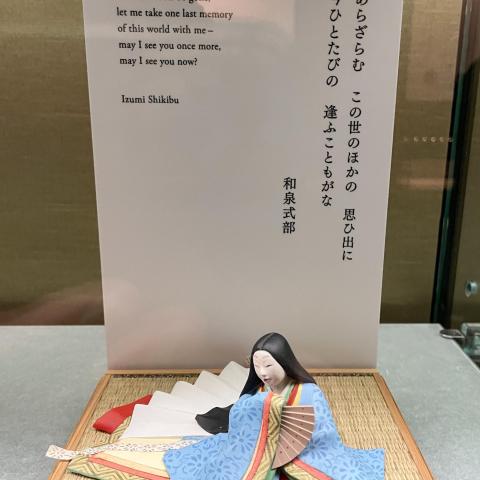 let me take one last memory
of this world with me –
may I see you once more,
may I see you now?
Izumi Shikibu
らざらむ この世のほかの 思ひ出に
ひとたびの 逢ふこともがな
和泉式部